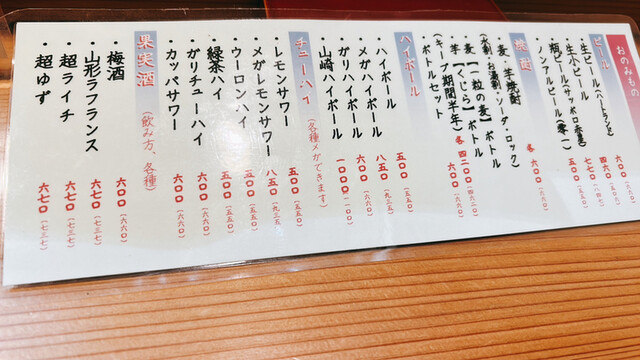 おのみもの
ビール
・生ビール(ハートランド) 七〇〇(七七〇)
・生小ビール 四六〇(五〇六)
・瓶ビール(サッポロ赤星) 七七〇(八四七)
・ノンアルビール(零一) 五〇〇(五五〇)
焼酎
・麦・芋焼酎 各六〇〇(六六〇)
(水割・お湯割・ソーダ・ロック)
・麦【一粒の麦】ボトル
・芋【くじら】ボトル 各四二〇〇(四六二〇)
(キープ期間半年)
・ボトルセット 六〇〇(六六〇)
ハイボール
・ハイボール 五〇〇(五五〇)
・メガハイボール 八五〇(九三五)
・ガリハイボール 六〇〇(六六〇)
・山崎ハイボール 一〇〇〇(一一〇〇)
チューハイ(各種メガできます)
・レモンサワー 五〇〇(五五〇)
・メガレモンサワー 八五〇(九三五)
・ウーロンハイ 五〇〇(五五〇)
・緑茶ハイ 五〇〇(五五〇)
・ガリチューハイ 六〇〇(六六〇)
・カッパサワー 六〇〇(六六〇)
果実酒(飲み方、各種)
・梅酒 六〇〇(六六〇)
・山形ラフランス 六七〇(七三七)
・超ライチ 六七〇(七三七)
・超ゆず 六七〇(七三七)